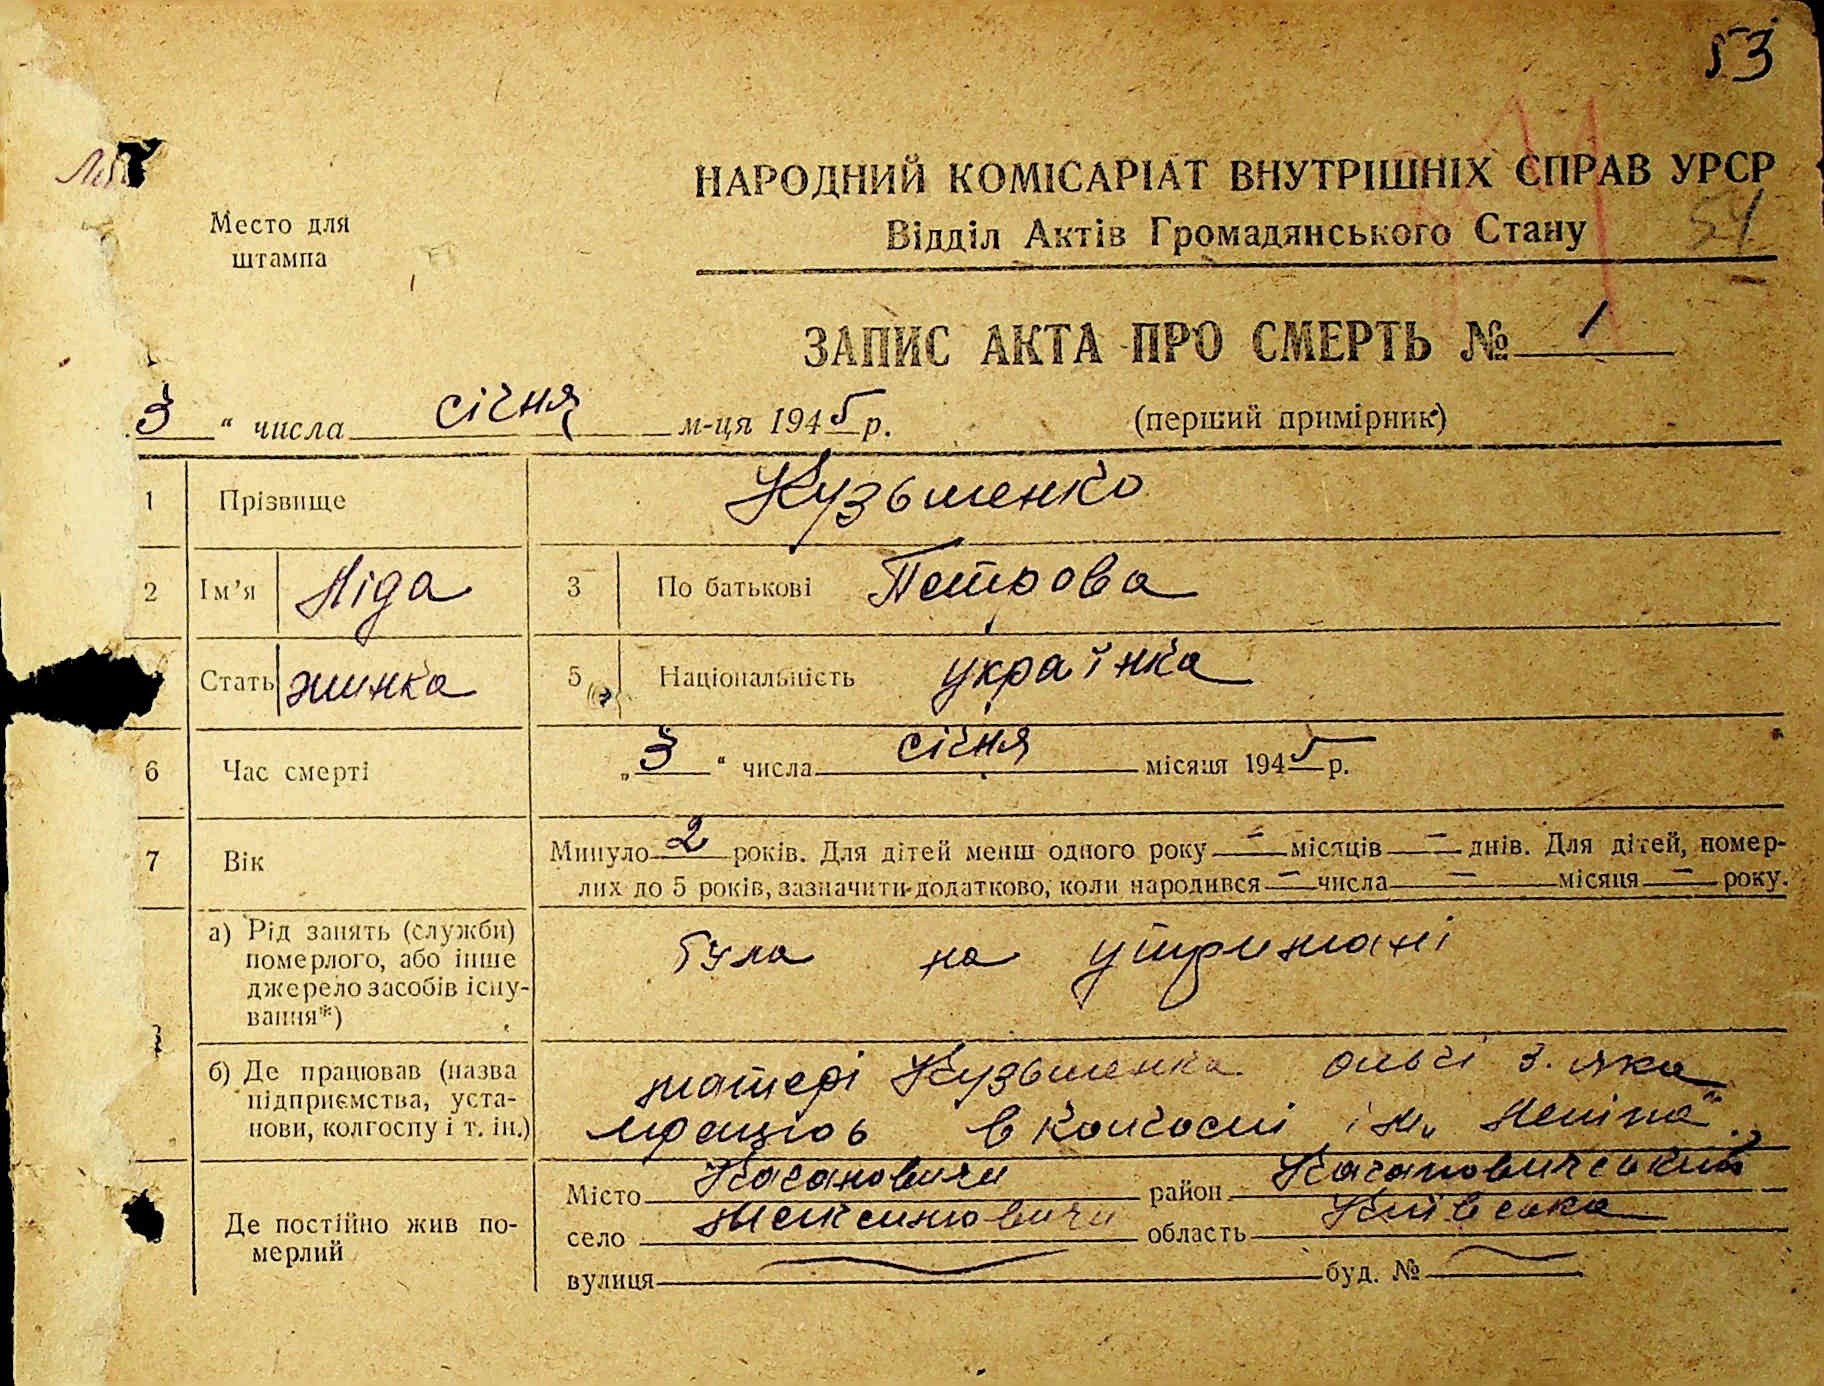 53
НАРОДНИЙ КОМІСАРІАТ ВНУТРІШНІХ СПРАВ УРСР
Відділ Актів Громадянського Стану
54
Место для
штампа
ЗАПИС АКТА ПРО СМЕРТЬ № 1
3 " числа січня м-ця 1945 р. (перший примірник)
1 Прізвище Кузьменко
2 Ім'я Ліда 3 По батькові Петрова
Стать жинка 5 Національність українка
6 Час смерті „3" числа січня місяця 1945 р.
7 Вік Минуло 2 років. Для дітей менш одного року — місяців — днів. Для дітей, помер-
лих до 5 років, зазначити додатково, коли народився — числа — місяця — року.
а) Рід занять (служби)
померлого, або інше
джерело засобів існу-
вання*)
була на утримані
б) Де працював (назва
підприємства, уста-
нови, колгоспу і т. ін.)
матері Кузьменка ольгі З. яка
працює в колгоспі ім. Леніна
Де постійно жив по-
мерлий
Місто Кагановичи район Кагановичський
село область Київська
вулиця буд. №